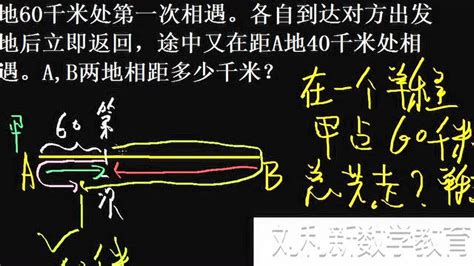 地60千米处第一次相遇。各自到达对方出发
地后立即返回，途中又在距A地40千米处相
遇。A,B两地相距多少千米？
在一个单程
甲 60 第一次
甲占60千米
A B
总共走？单程
千米
刘利新数学教育